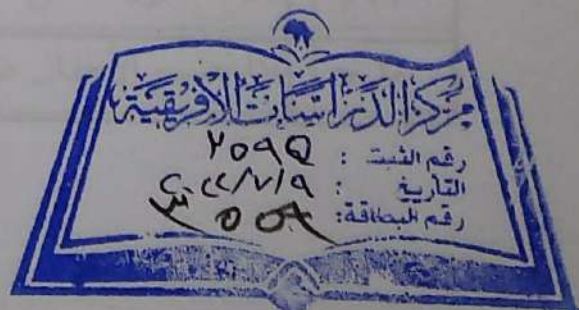 مركز الدراسات الأفريقية
رقم الثبت :
التاريخ : ٢٠٢٢/٧/٩
رقم البطاقة: